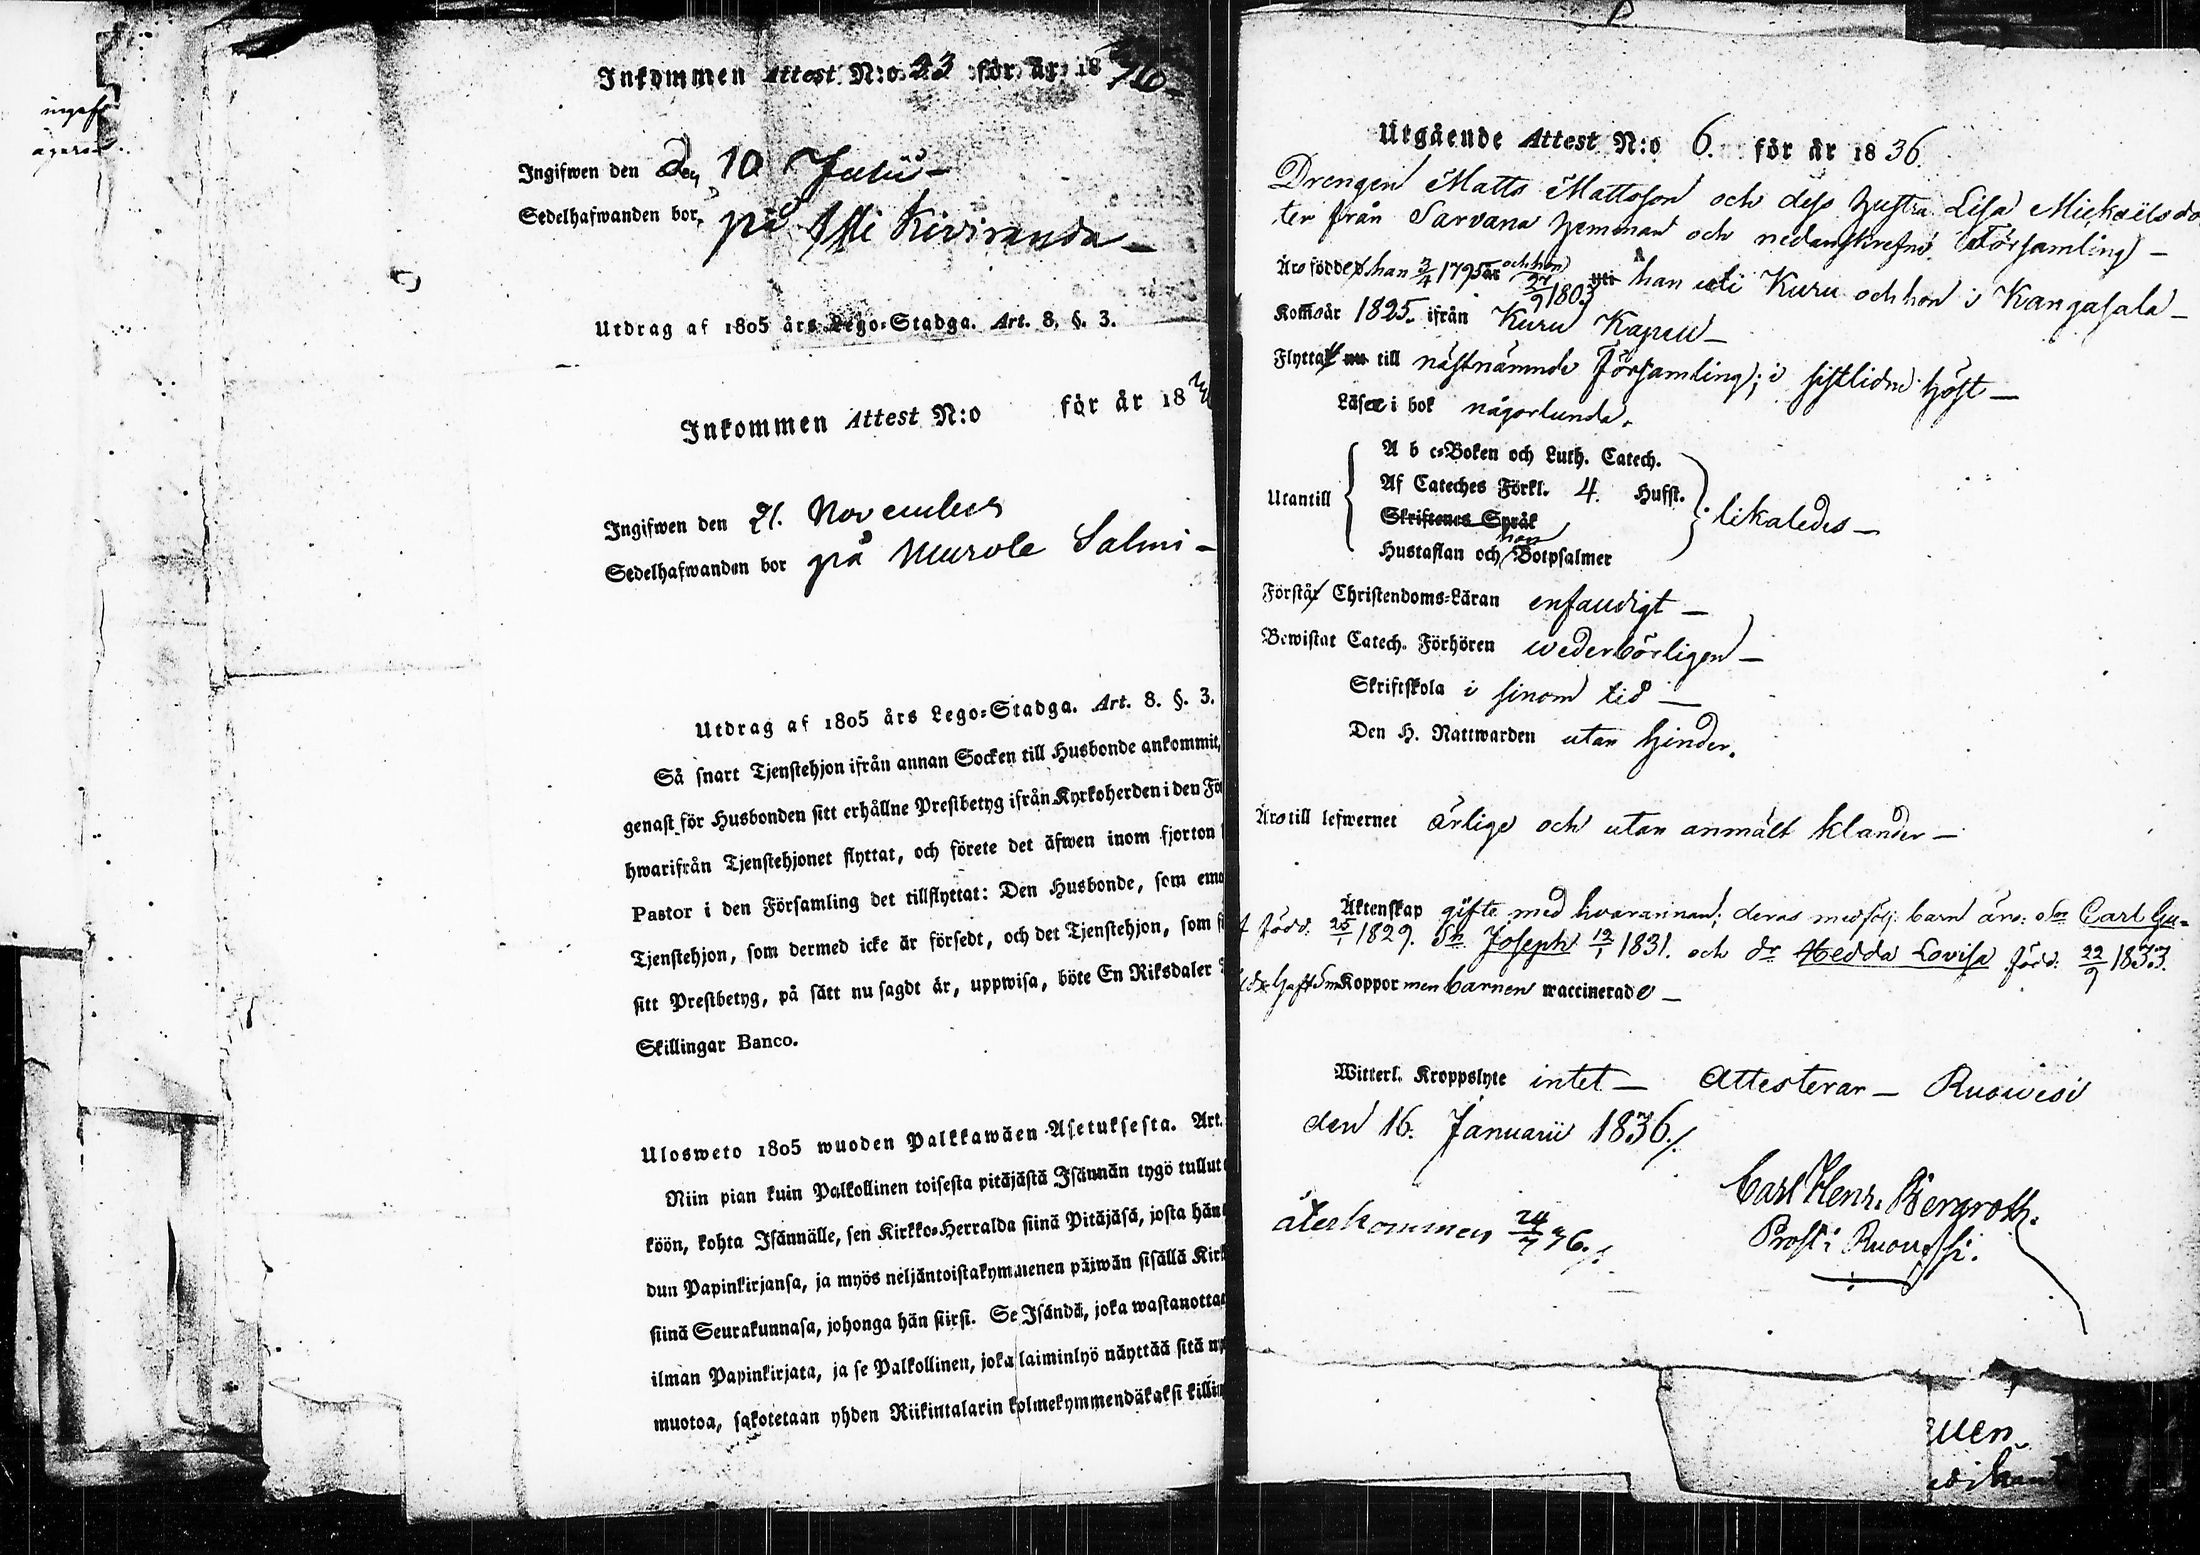 ingaf
ägaren
Inkommen Attest N:o 23 för år 1836
Ingifwen den 10 Julii
Sedelhafwanden bor på Kiviranda
Utdrag af 1805 års Lego-Stadga. Art. 8. §. 3.
Inkommen Attest N:o för år 18
Ingifwen den 21. November
Sedelhafwanden bor på Murole Salmi
Utdrag af 1805 års Lego-Stadga. Art. 8. §. 3.
Så snart Tjenstehjon ifrån annan Socken till Husbonde ankommit,
genast för Husbonden sitt erhållne Prestbetyg ifrån Kyrkoherden i den För
hwarifrån Tjenstehjonet flyttat, och förete det äfwen inom fjorton
Pastor i den Församling det tillflyttat: Den Husbonde, som emo
Tjenstehjon, som dermed icke är försedt, och det Tjenstehjon, som
sitt Prestbetyg, på sätt nu sagdt är, uppwisa, böte En Riksdaler
Skillingar Banco.
Ulosweto 1805 wuoden Palkkawäen-Asetuksesta. Art.
Niin pian kuin Palkollinen toisesta pitäjästä Isännän tygö tullut
köön, kohta Isännälle, sen Kirkko-Herralda siinä Pitäjäsä, josta hän
dun Papinkirjansa, ja myös neljäntoistakymmenen päiwän sisällä Kirk
siinä Seurakunnasa, johonga hän siirsi. Se Isändä, joka wastanottaa
ilman Papinkirjata, ja se Palkollinen, joka laiminlyö näyttää sitä
muotoa, sakotetaan yhden Riikintalarin kolmekymmendäkaksi killin
Utgående Attest N:o 6. för år 1836.
Drengen Matts Mattsson och dess hustru Lisa Mickaelsdo
ter från Sarvana hemman och nedanskrefne Församling —
Äro födde han 3/4 1795 och hon 27/9 1803 han uti Kuru och hon i Kangasala —
Komo år 1825 ifrån Kuru Kapell —
Flyttat nu till nästnämnde Församling; i sistlidne höst —
Läser i bok någorlunda.
Utantill
A b c-Boken och Luth. Catech.
Af Cateches Förkl. 4. Hufst.
Skriftenes Språk
Hustaflan och hon Botpsalmer
likaledes —
Förstår Christendoms-Läran enfaldigt —
Bewistat Catech. Förhören wederbörligen —
Skriftskola i sinom tid —
Den H. Nattwarden utan hinder.
Äro till lefwernet ärlige och utan anmält klander —
Äktenskap gifte med hvarannan; deras medfölj. barn äro: Carl Gu-
st född 25/1 1829. Sn Joseph 12/1 1831. och dr Hedda Lovisa född 22/9 1833.
haft Sm Koppor men barnen waccinerade —
Witterl. Kroppslyte intet — Attesterar — Ruowesi
den 16. Januarii 1836./.
Carl Henr. Bergroth.
Prost i Ruowesi.
återkommen 24/7 36./.